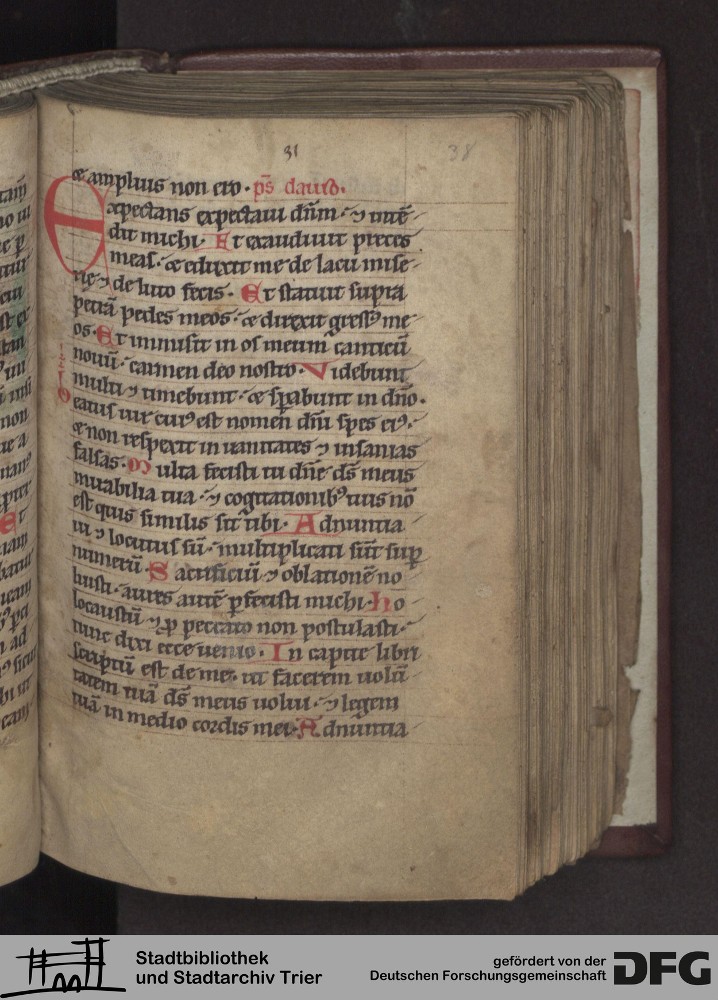 31
38
& amplius non ero. ps̄ dauid.
Expectans expectaui dn̄m. ⁊ inte͂
dit michi. Et exaudiuit preces
meas. & eduxit me de lacu mise
rie ⁊ de luto fecis. Et statuit supra
petrā pedes meos. & direxit gressꝰ me
os. Et inmisit in os meum canticū
nouū. carmen deo nostro. Videbunt
multi ⁊ timebunt. & spabunt in dn̄o.
Beatus uir cuiꝰ est nomen dn̄i spes eiꝰ.
& non respexit in uanitates ⁊ insanias
falsas. Multa fecisti tu dn̄e ds̄ meus
mirabilia tua. ⁊ cogitationibꝰ tuis nō
est quis similis sit tibi. Adnuntia
ui ⁊ locutus sū. multiplicati sūt sup
numerū. Sacrificiū ⁊ oblationē no
luisti. aures autē ꝑfecisti michi. Ho
locaustū ⁊ ꝓ peccato non postulasti.
tunc dixi ecce uenio. In capite libri
scriptū est de me. ut facerem uolū
tatem tuā ds̄ meus uolui. ⁊ legem
tuā in medio cordis mei. Adnuntia
Stadtbibliothek
und Stadtarchiv Trier
gefördert von der
Deutschen Forschungsgemeinschaft
DFG